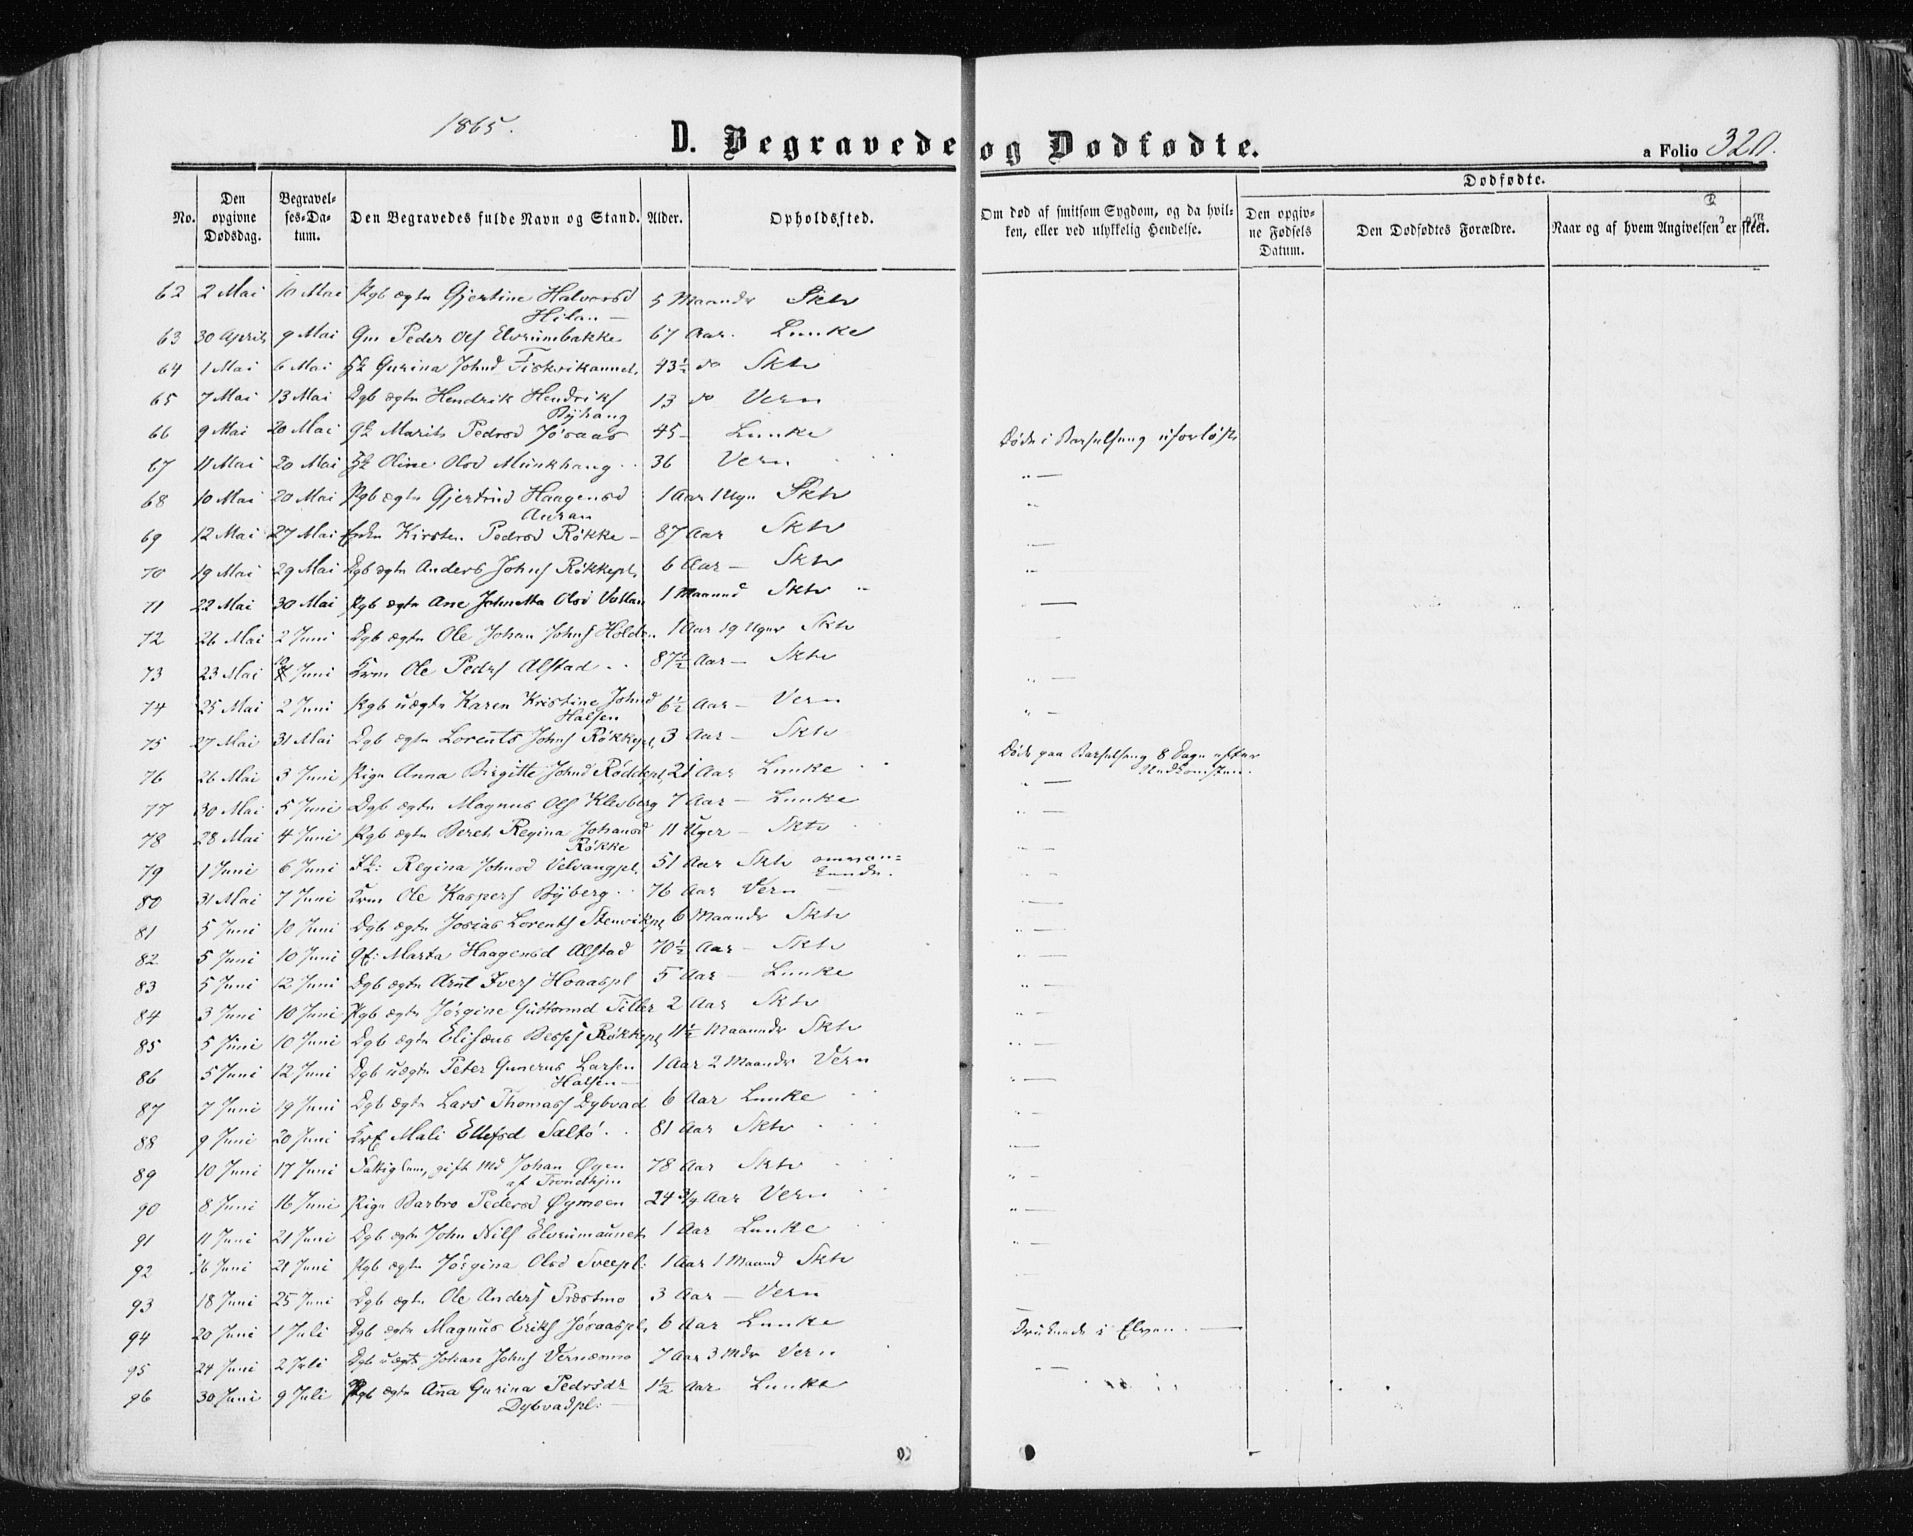 1865.
D. Begravede og Dødfødte.
a Folio 320.
No.
Den opgivne Dødsdag.
Begravelses-Datum.
Den Begravedes fulde Navn og Stand.
Alder.
Opholdssted.
Om død af smitsom Sygdom, og da hvilken, eller ved ulykkelig Hendelse.
Dødfødte.
Den opgivne Fødsels Datum.
Den Dødfødtes Forældre.
Naar og af hvem Angivelsen er skeet.
62 2 Mai 10 Mai Pgb ægte Gjertine Halvorsd 5 Maaneder Sktv
Hilan —
63 30 April 9 Mai Gm Peder Ols Elvrumbakke 67 Aar. Lunke
64 1 Mai 6 Mai Gurina Johnd Fiskvikaunet 43½ do Sktv
65 7 Mai 13 Mai Dgb ægte Hendrik Hendriks 13 do Vern
Byhaug
66 9 Mai 20 Mai Marit Pedrsd Jøsaas 45 - Lunke Døde i Barselseng uforløst
67 11 Mai 20 Mai Oline Olsd Munkhaug 36 Vern
68 10 Mai 20 Mai Pgb ægte Gjertrud Haagensd 1 Aar 1 Uge Sktv
Auran
69 12 Mai 27 Mai Kirsten Pedrsd Røkke — 87 Aar Sktv
70 19 Mai 29 Mai Dgb ægte Anders Johns Røkkepl. 6 Aar — Sktv
71 22 Mai 30 Mai Pgb ægte Ane Johnetta Olsd Vollan 1 Maaned Sktv
72 26 Mai 2 Juni Dgb ægte Ole Johan Johns Holden 1 Aar 19 Uger Sktv
73 23 Mai Juni Krm Ole Peders Alstad 87½ Aar — Sktv
74 25 Mai 2 Juni Pgb uægte Karen Kristine Johnd 6½ Aar — Vern
Halsen
75 27 Mai 31 Mai Dgb ægte Lorents Johns Røkkepl. 3 Aar — Sktv
76 26 Mai 3 Juni Pige Anna Birgitte Johnd 21 Aar Lunke Døde paa Barselseng 8 Dage efter
Nedkomsten.
77 30 Mai 5 Juni Dgb ægte Magnus Ols Klevberg 7 Aar — Lunke
78 28 Mai 4 Juni Pgb ægte Beret Regina Johansd 11 Uger — Sktv
Røkke
79 1 Juni 6 Juni Regina Johnsd Velvangpl. 51 Aar Sktv
80 31 Mai 7 Juni Krm Ole Kaspers Byberg 76 Aar Vern —
81 5 Juni 10 Juni Dgb ægte Josias Lorents Stenvikpl 6 Maaneder Sktv
82 5 Juni 10 Juni Marta Haagensd Alstad 70½ Aar — Sktv
83 5 Juni 12 Juni Dgb ægte Arnt Ivers Hoaaspl 5 Aar — Lunke
84 3 Juni 10 Juni Pgb ægte Jørgine Guttormd Tiller 2 Aar Sktv
85 5 Juni 10 Juni Dgb ægte Elisæus Røkkepl 11½ Maaneder Sktv
86 5 Juni 12 Juni Dgb uægte Peter Gunerus Larsen 1 Aar 2 Maaneder Vern
Halsen —
87 7 Juni 19 Juni Dgb ægte Lars Thomass Dybvad 6 Aar Lunke
88 9 Juni 20 Juni Mali Ellefsd Saltø 81 Aar Sktv
89 10 Juni 17 Juni gift md Johan Øyen 78 Aar Sktv
af Trondhjm
90 8 Juni 16 Juni Pige Barbro Pedersd Øymoen 24 3/4 Aar Vern
91 11 Juni 21 Juni Dgb ægte John Nils Elvrumaunet 1 Aar Lunke
92 16 Juni 21 Juni Pgb ægte Jørgina Olsd Sveepl. 1 Aar 1 Maaned Sktv
93 18 Juni 25 Juni Dgb ægte Ole Anders Præstmo 3 Aar — Vern
94 20 Juni 1 Juli Dgb ægte Magnus Eriks Jøsaaspl. 6 Aar Lunke Druknede i Elven. —
95 24 Juni 2 Juli Dgb uægte Johan Johns Vernesmo 7 Aar 3 Mdr Vern
96 30 Juni 9 Juli Pgb ægte Ana Gurina Pedersdr 1½ Aar Lunke
Dybvadpl. —